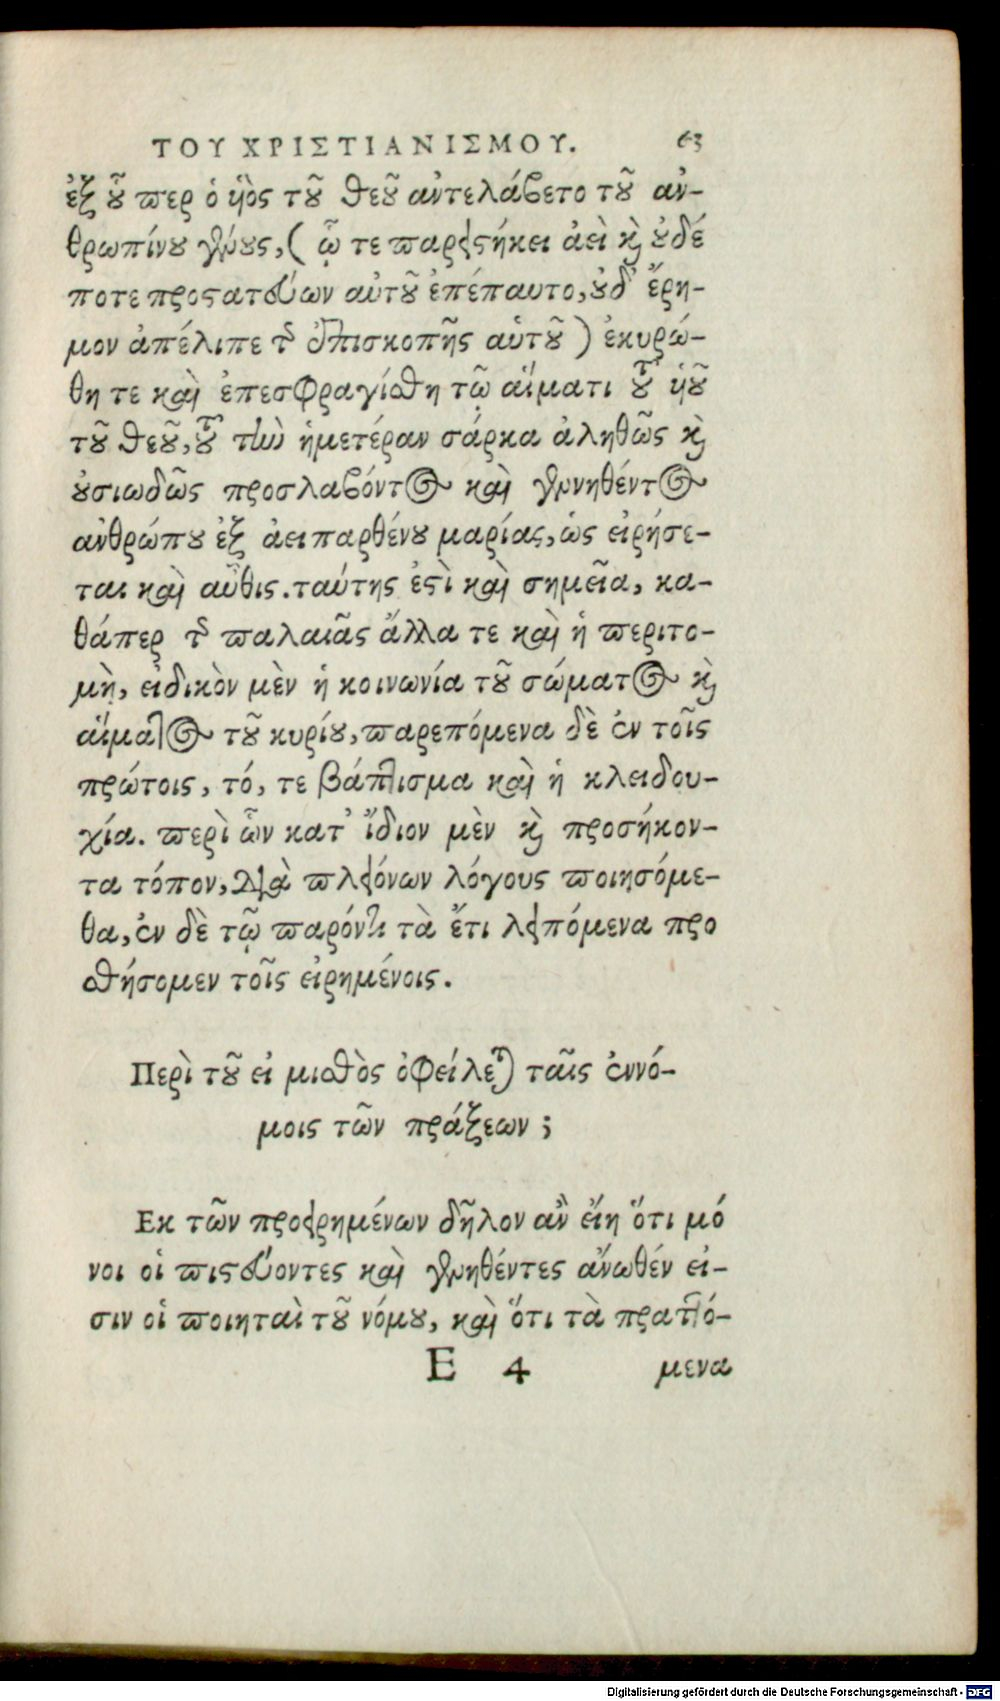 ΤΟΥ ΧΡΙΣΤΙΑΝΙΣΜΟΥ. 63
ἐξ οὗ περ ὁ ὑιὸς τοῦ θεοῦ ἀντελάβετο τοῦ ἀν-
θρωπίνου γένους, ( ᾧ τε παρειστήκει ἀεὶ καὶ οὐδέ
ποτε προστατεύων αὐτοῦ ἐπέπαυτο, οὐδ' ἔρη-
μον ἀπέλιπε τῆς ἐπισκοπῆς αὑτοῦ ) ἐκυρώ-
θη τε καὶ ἐπεσφραγίσθη τῷ αἵματι τοῦ ὑιοῦ
τοῦ θεοῦ, τοῦ τὴν ἡμετέραν σάρκα ἀληθῶς καὶ
οὐσιωδῶς προσλαβόντος καὶ γεννηθέντος
ἀνθρώπου ἐξ ἀειπαρθένου μαρίας, ὡς εἰρήσε-
ται καὶ αὖθις. ταύτης ἐστὶ καὶ σημεῖα, κα-
θάπερ τῆς παλαιᾶς ἄλλα τε καὶ ἡ περιτο-
μὴ, εἰδικὸν μὲν ἡ κοινωνία τοῦ σώματος καὶ
αἵματος τοῦ κυρίου, παρεπόμενα δὲ ἐν τοῖς
πρώτοις, τό, τε βάπτισμα καὶ ἡ κλειδου-
χία. περὶ ὧν κατ' ἴδιον μὲν καὶ προσήκον-
τα τόπον, διὰ πλειόνων λόγους ποιησόμε-
θα, ἐν δὲ τῷ παρόντι τὰ ἔτι λειπόμενα προ
σθήσομεν τοῖς εἰρημένοις.
Περὶ τοῦ εἰ μισθὸς ὀφείλεται ταῖς ἐννό-
μοις τῶν πράξεων ;
Εκ τῶν προειρημένων δῆλον ἂν εἴη ὅτι μό
νοι οἱ πιστεύοντες καὶ γεννηθέντες ἄνωθέν εἰ-
σιν οἱ ποιηταὶ τοῦ νόμου, καὶ ὅτι τὰ πραττό-
E 4 μενα
Digitalisierung gefördert durch die Deutsche Forschungsgemeinschaft - DFG